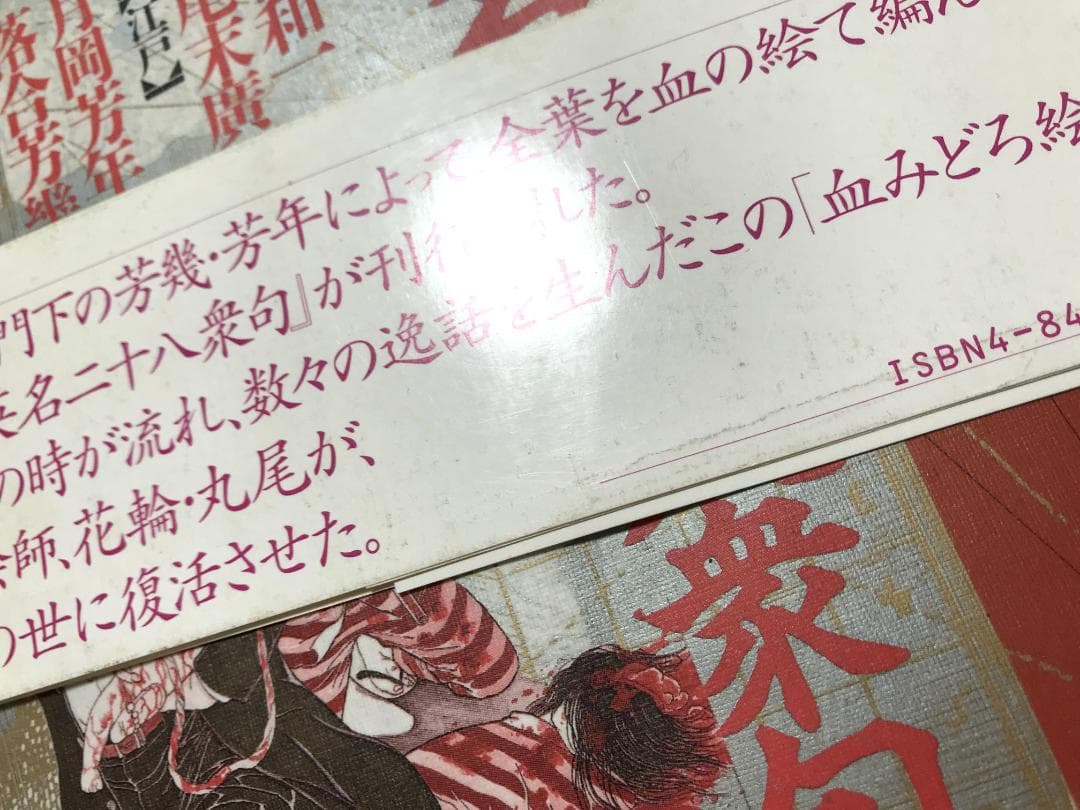 和一
尾末廣
【江戸】
月岡芳年
落合芳幾
門下の芳幾・芳年によって全葉を血の絵で編ん
英名二十八衆句』が刊行した。
の時が流れ、数々の逸話を生んだこの「血みどろ絵
絵師、花輪・丸尾が、
の世に復活させた。
ISBN4-84
衆句